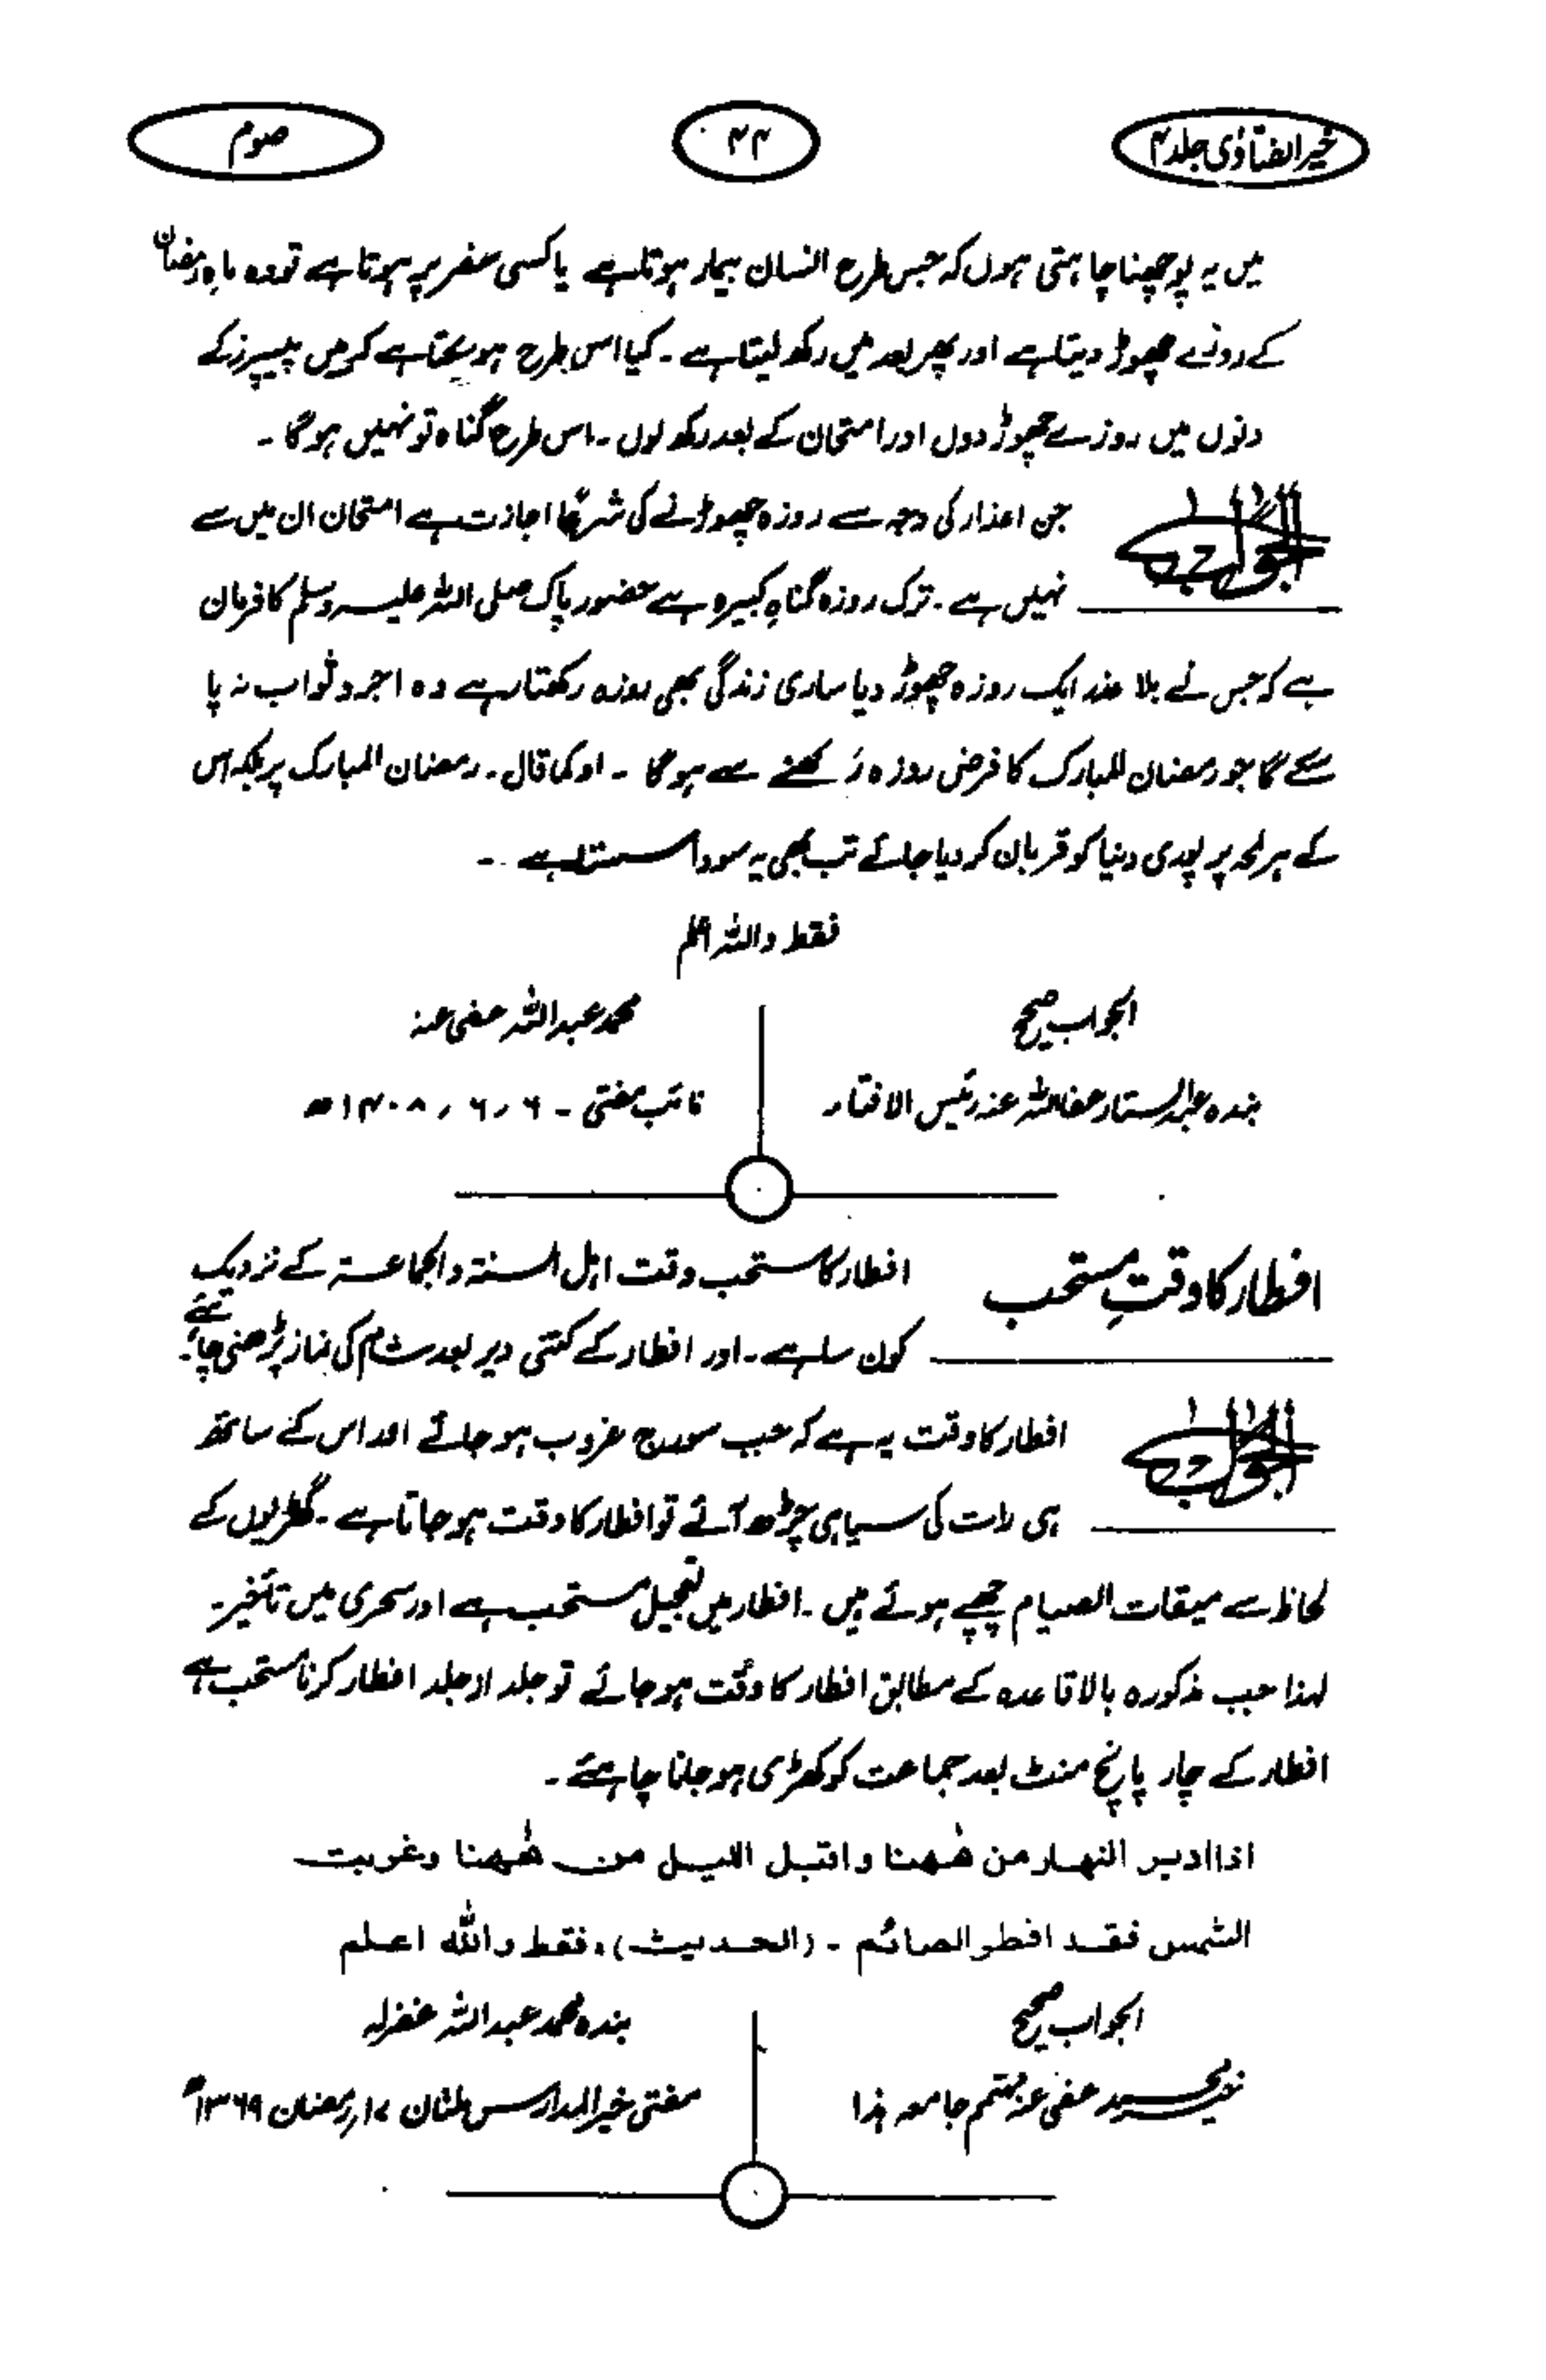 خیر الفتاوٰی جلد ۴
۴۴
صوم
میں یہ پوچھنا چاہتی ہوں کہ جس طرح انسان بیمار ہوتا ہے یا کسی سفر پر ہوتا ہے تو وہ ماہِ رمضان
کے روزے چھوڑ دیتا ہے اور پھر بعد میں رکھ لیتا ہے ۔ کیا اس طرح ہو سکتا ہے کہ میں پیپرز کے
دنوں میں روزے چھوڑ دوں اور امتحان کے بعد رکھ لوں ۔ اس طرح گناہ تو نہیں ہو گا ۔
الجواب
جن اعذار کی وجہ سے روزہ چھوڑنے کی شرعًا اجازت ہے امتحان ان میں سے
نہیں ہے ۔ ترک روزہ گناہِ کبیرہ ہے حضور پاک صلی اللہ علیہ وسلم کا فرمان
ہے کہ جس نے بلا عذر ایک روزہ چھوڑ دیا ساری زندگی بھی روزہ رکھتا رہے وہ اجر و ثواب نہ پا
سکے گا جو رمضان المبارک کا فرض روزہ رکھنے سے ہو گا ۔ او کما قال ۔ رمضان المبارک پر بلکہ اس
کے ہر لمحہ پر پوری دنیا کو قربان کر دیا جائے تب بھی یہ سودا سستا ہے ۔
فقط واللہ اعلم
الجواب صحیح
بندہ عبدالستار عفا اللہ عنہ رئیس الافتاء
محمد عبداللہ عفی عنہ
نائب مفتی ۔ ۶ ؍ ۶ ؍ ۱۴۰۸ ھ
افطار کا وقتِ مستحب
افطار کا مستحب وقت اہل السنۃ والجماعۃ کے نزدیک
کون سا ہے ۔ اور افطار کے کتنی دیر بعد شام کی نماز پڑھنی چاہئے
الجواب
افطار کا وقت یہ ہے کہ جب سورج غروب ہو جائے اور اس کے ساتھ
ہی رات کی سیاہی چڑھ آئے تو افطار کا وقت ہو جاتا ہے ۔ گھڑیوں کے
لحاظ سے میقات الصیام چھپے ہوئے ہیں ۔ افطار میں تعجیل مستحب ہے اور سحری میں تاخیر ۔
لہذا جب مذکورہ بالا قاعدہ کے مطابق افطار کا وقت ہو جائے تو جلد از جلد افطار کرنا مستحب ہے
افطار کے چار پانچ منٹ بعد جماعت کو کھڑی ہو جانا چاہئے ۔
اذا ادبر النهار من هٰهنا واقبل الليل من هٰهنا وغربت
الشمس فقد افطر الصائم ۔ (الحديث) ، فقط والله اعلم
الجواب صحیح
عفی عنہ مہتمم جامعہ ہذا
بندہ محمد عبداللہ غفرلہ
مفتی خیر المدارس ملتان ۱۷ رمضان ۱۳۶۹ھ